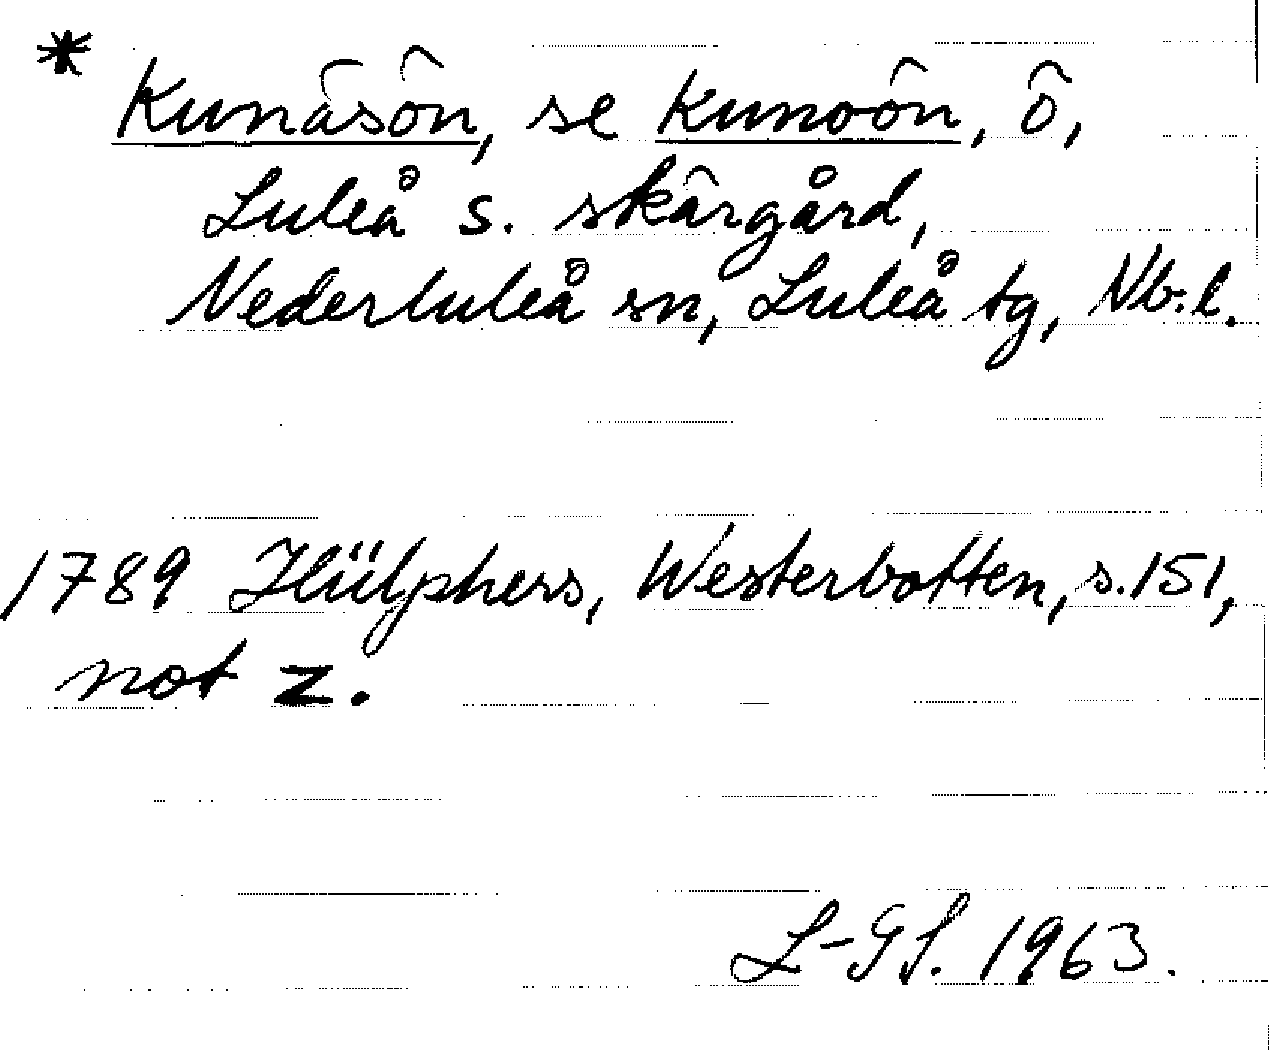 * Kunäsön, se Kunoön, ö,
Luleå s. skärgård,
Nederluleå sn, Luleå tg, Nb. l.
1789 Hülphers, Westerbotten, s. 151,
not z.
L-GS. 1963.